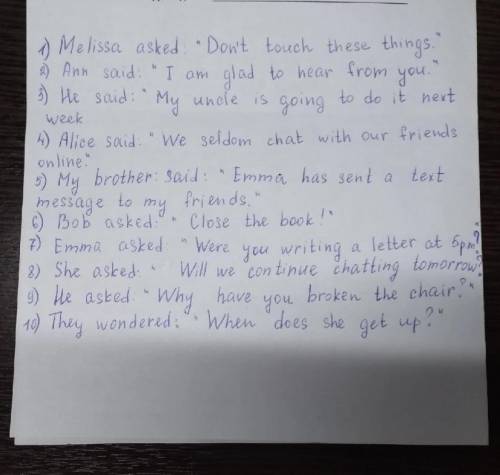 1) Melissa asked: "Don't touch these things."
2) Ann said: "I am glad to hear from you."
3) He said: "My uncle is going to do it next
week
4) Alice said: "We seldom chat with our friends
online."
5) My brother: said: "Emma has sent a text
message to my friends."
6) Bob asked: "Close the book!"
7) Emma asked: "Were you writing a letter at 5pm?"
8) She asked: "Will we continue chatting tomorrow?
9) He asked: "Why have you broken the chair?"
10) They wondered: "When does she get up?"